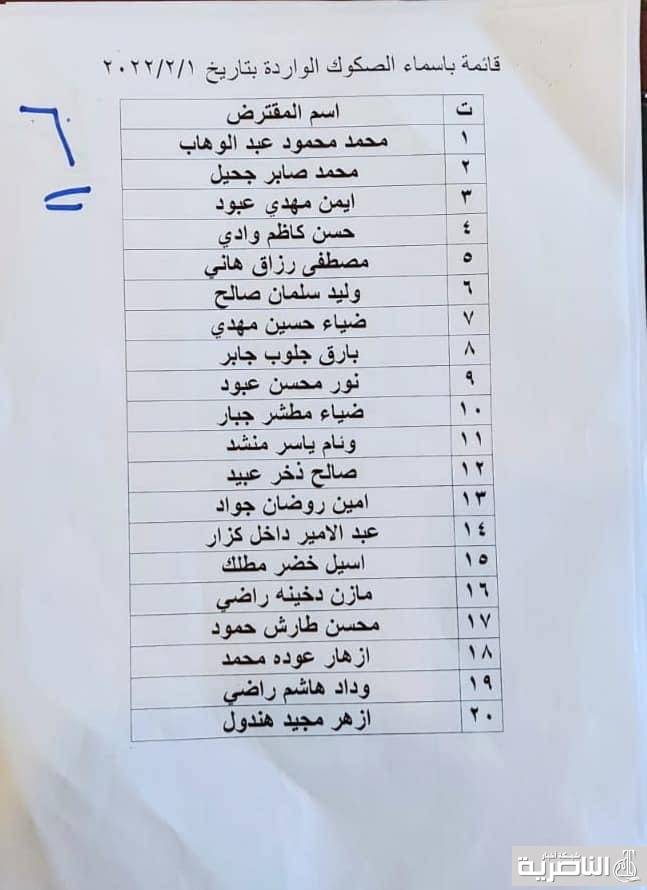 قائمة باسماء الصكوك الواردة بتاريخ ٢٠٢٢/٢/١
٦
ت اسم المقترض
١ محمد محمود عبد الوهاب
٢ محمد صابر جحيل
٣ ايمن مهدي عبود
٤ حسن كاظم وادي
٥ مصطفى رزاق هاني
٦ وليد سلمان صالح
٧ ضياء حسين مهدي
٨ بارق جلوب جابر
٩ نور محسن عبود
١٠ ضياء مطشر جبار
١١ وئام ياسر منشد
١٢ صالح ذخر عبيد
١٣ امين روضان جواد
١٤ عبد الامير داخل كزار
١٥ اسيل خضر مطلك
١٦ مازن دخينه راضي
١٧ محسن طارش حمود
١٨ ازهار عوده محمد
١٩ وداد هاشم راضي
٢٠ ازهر مجيد هندول
شبكة أخبار
الناصرية